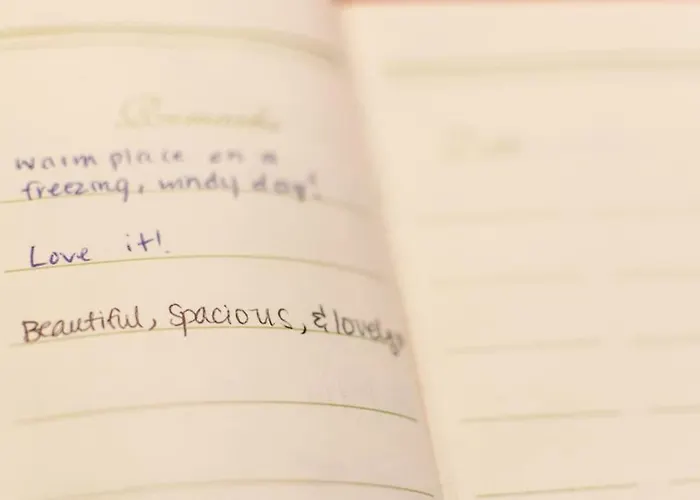 Remarks
warm place on a
freezing, windy day!
Love it!
Beautiful, Spacious, & lovely